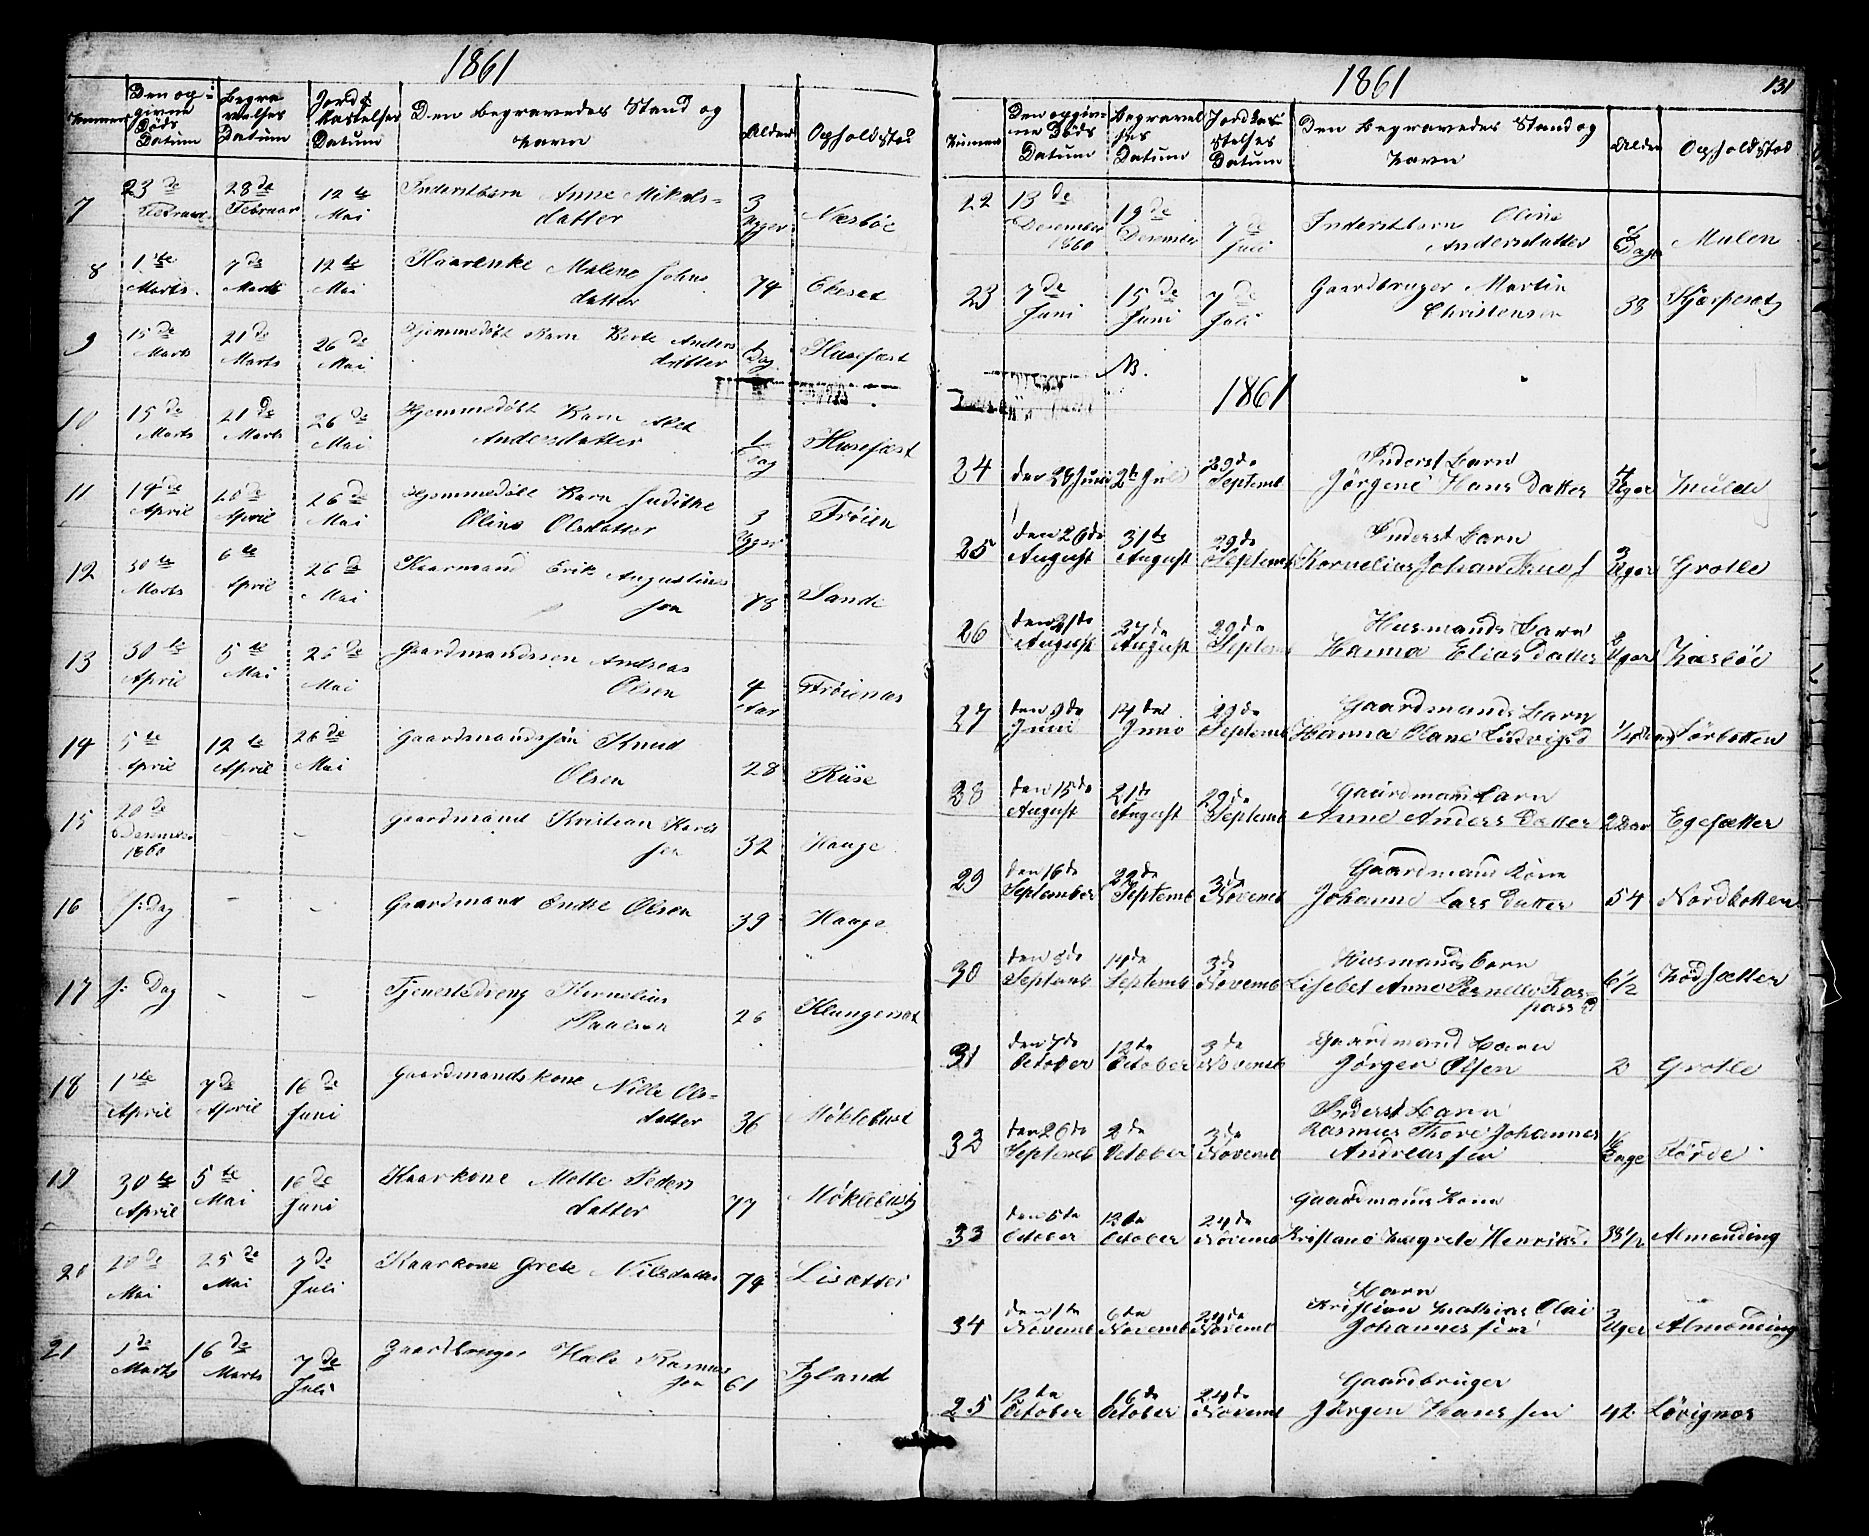 1861
Nummer
Den opgivne Døds Datum
Begravelses Datum
Jordkastelses Datum
Den Begravedes Stand og Navn
Alder
Opholdsted
7 23de Februar 28de Februar 12te Mai Inderstbarn Anne Mikals-
datter 3 Uger Næsbøe
8 1ste Marts 7de Marts 12te Mai Kaarenke Malene Johns
datter 74 Ekeset
9 15de Marts 21de Marts 26de Mai Hjemmedøbt Barn Berte Anders
datter 1 Dag Husefæst
10 15de Marts 21de Marts 26de Mai Hjemmedøbt Barn
Andersdatter 1 Dag Husefæst
11 14de April 20de April 26de Mai Hjemmedøbt Barn Judithe
Oline Olsdatter 3 Uger Frøien
12 30te Marts 6te April 26de Mai Kaarmand Erik Augustinus
sen 78 Sande
13 30te April 5te Mai 26de Mai Gaardmandssøn Andreas
Olsen 4 Aar Frøienæs
14 5te April 12te April 26de Mai Gaardmandssøn Knud
Olsen 28 Riise
15 20de Desember 1860 - - Gaardmand Kristian
sen 32 Hauge
16 s: Dag - - Gaardmand Endre Olsen 39 Hauge
17 s: Dag - - Tjenestedreng Kornelius
Paulsen 26 Klungeset
18 1ste April 7de April 16de Juni Gaardmandskone Nille Ols-
datter 36 Møklebust
19 30te April 5te Mai 16de Juni Kaarkone Mette Peders
datter 77 Møklebust
20 20de Mai 25de Mai 7de Juli Kaarkone Grete Nilsdatter 74 Lisætter
21 1de Marts 16de Marts 7de Juli Gaardbruger Rasmus
sen 61 Igland
1861
131
Nummer
Den opgivne Døds Datum
Begravelses Datum
Jordkastelses Datum
Den Begravedes Stand og Navn
Alder
Opholdsted
22 13de Desember 1860 19de Desember 7de Juli Inderstbarn Oline
Andersdatter Dage Mulen
23 7de Juni 15de Juni 7de Juli Gaardbruger Martin
Christensen 38
NB.
1861
24 den 28 Juni 2de Juli 29de Septemb Inderst Barn
Jørgene Hans Datter 4 Uger Mulde
25 den 26de August 31te August 29de Septemb Inderst Barn
Kornelius Johan 3 Uger Grotle
26 den 21de August 27de August 29de Septemb Husmands Barn
Hanna Elias Datter Uger Næsbøe
27 den 9de Juni 14de Juni 29de Septemb Gaardmands Barn
Hanna Olane Ludvigs d Sørbotten
28 den 15de August 21de August 29de Septemb Gaardmands Barn
Anne Anders Datter 2 Aar Egesætter
29 den 16de September 22de Septemb 3de Novemb Gaardmand Kone
Johanne Lars Datter 54 Nordbotten
30 den 8de Septemb 14de Septemb 3de Novemb Husmands barn
Lisebet Anne Pernelle Kas-
pars D 6 1/2 Nødsætter
31 den 7de October 12te October 3de Novemb Gaardmand Barn
Jørgen Olsen 2 Grotle
32 den 26de Septemb 2de October 3de Novemb Inderst Barn
Rasmus Thore Johannes
Andreassen 16 Dage Førde
33 den 6te October 12te October 24de Novemb Gaardmands Kone
Kristane Magrete Henriks. 38 1/2 Almending
34 den 1ste Novemb 6te Novemb 24de Novemb Barn
Kristian Mathias Olai
Johannessen 3 Uger Almending
25 12te October 16de October 24de Novemb Gaardbruger
Jørgen Hanssen 42